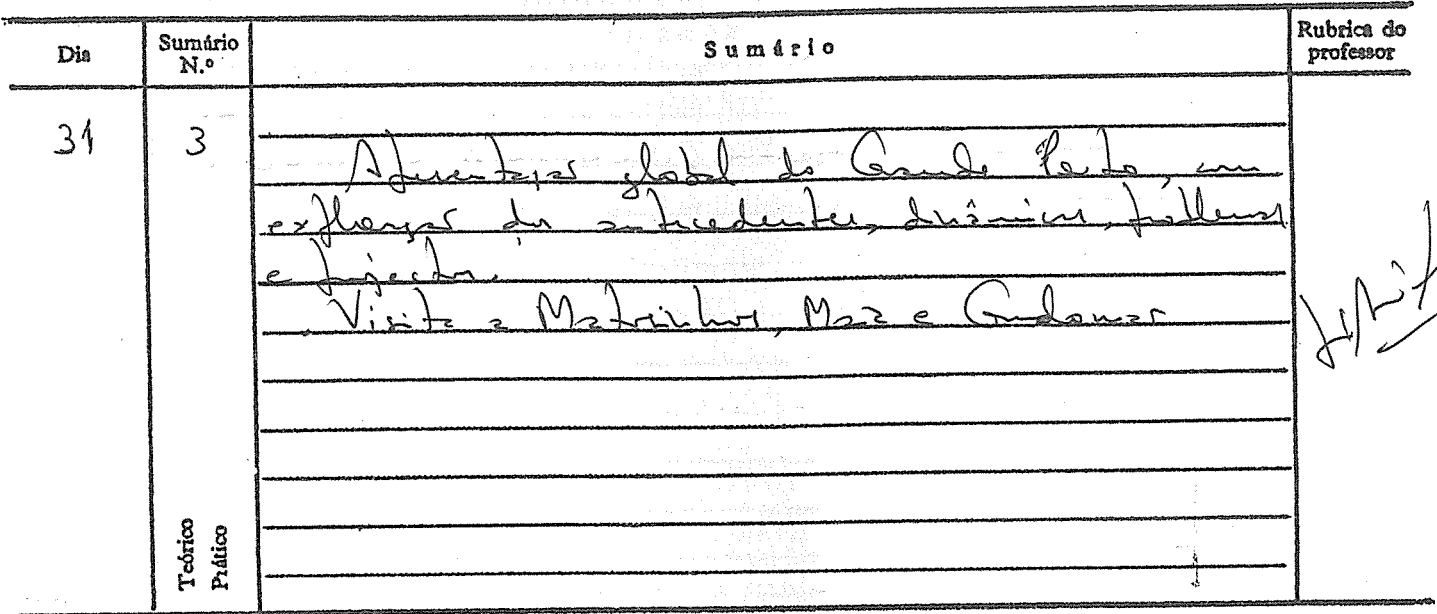 Dia
Sumário N.º
Sumário
Rubrica do professor
31
3
Apresentação global do Grande Porto, com
explicação dos antecedentes, dinâmicas, problemas
e projectos.
Visita a Matosinhos, Maia e Gondomar
Teórico
Prático